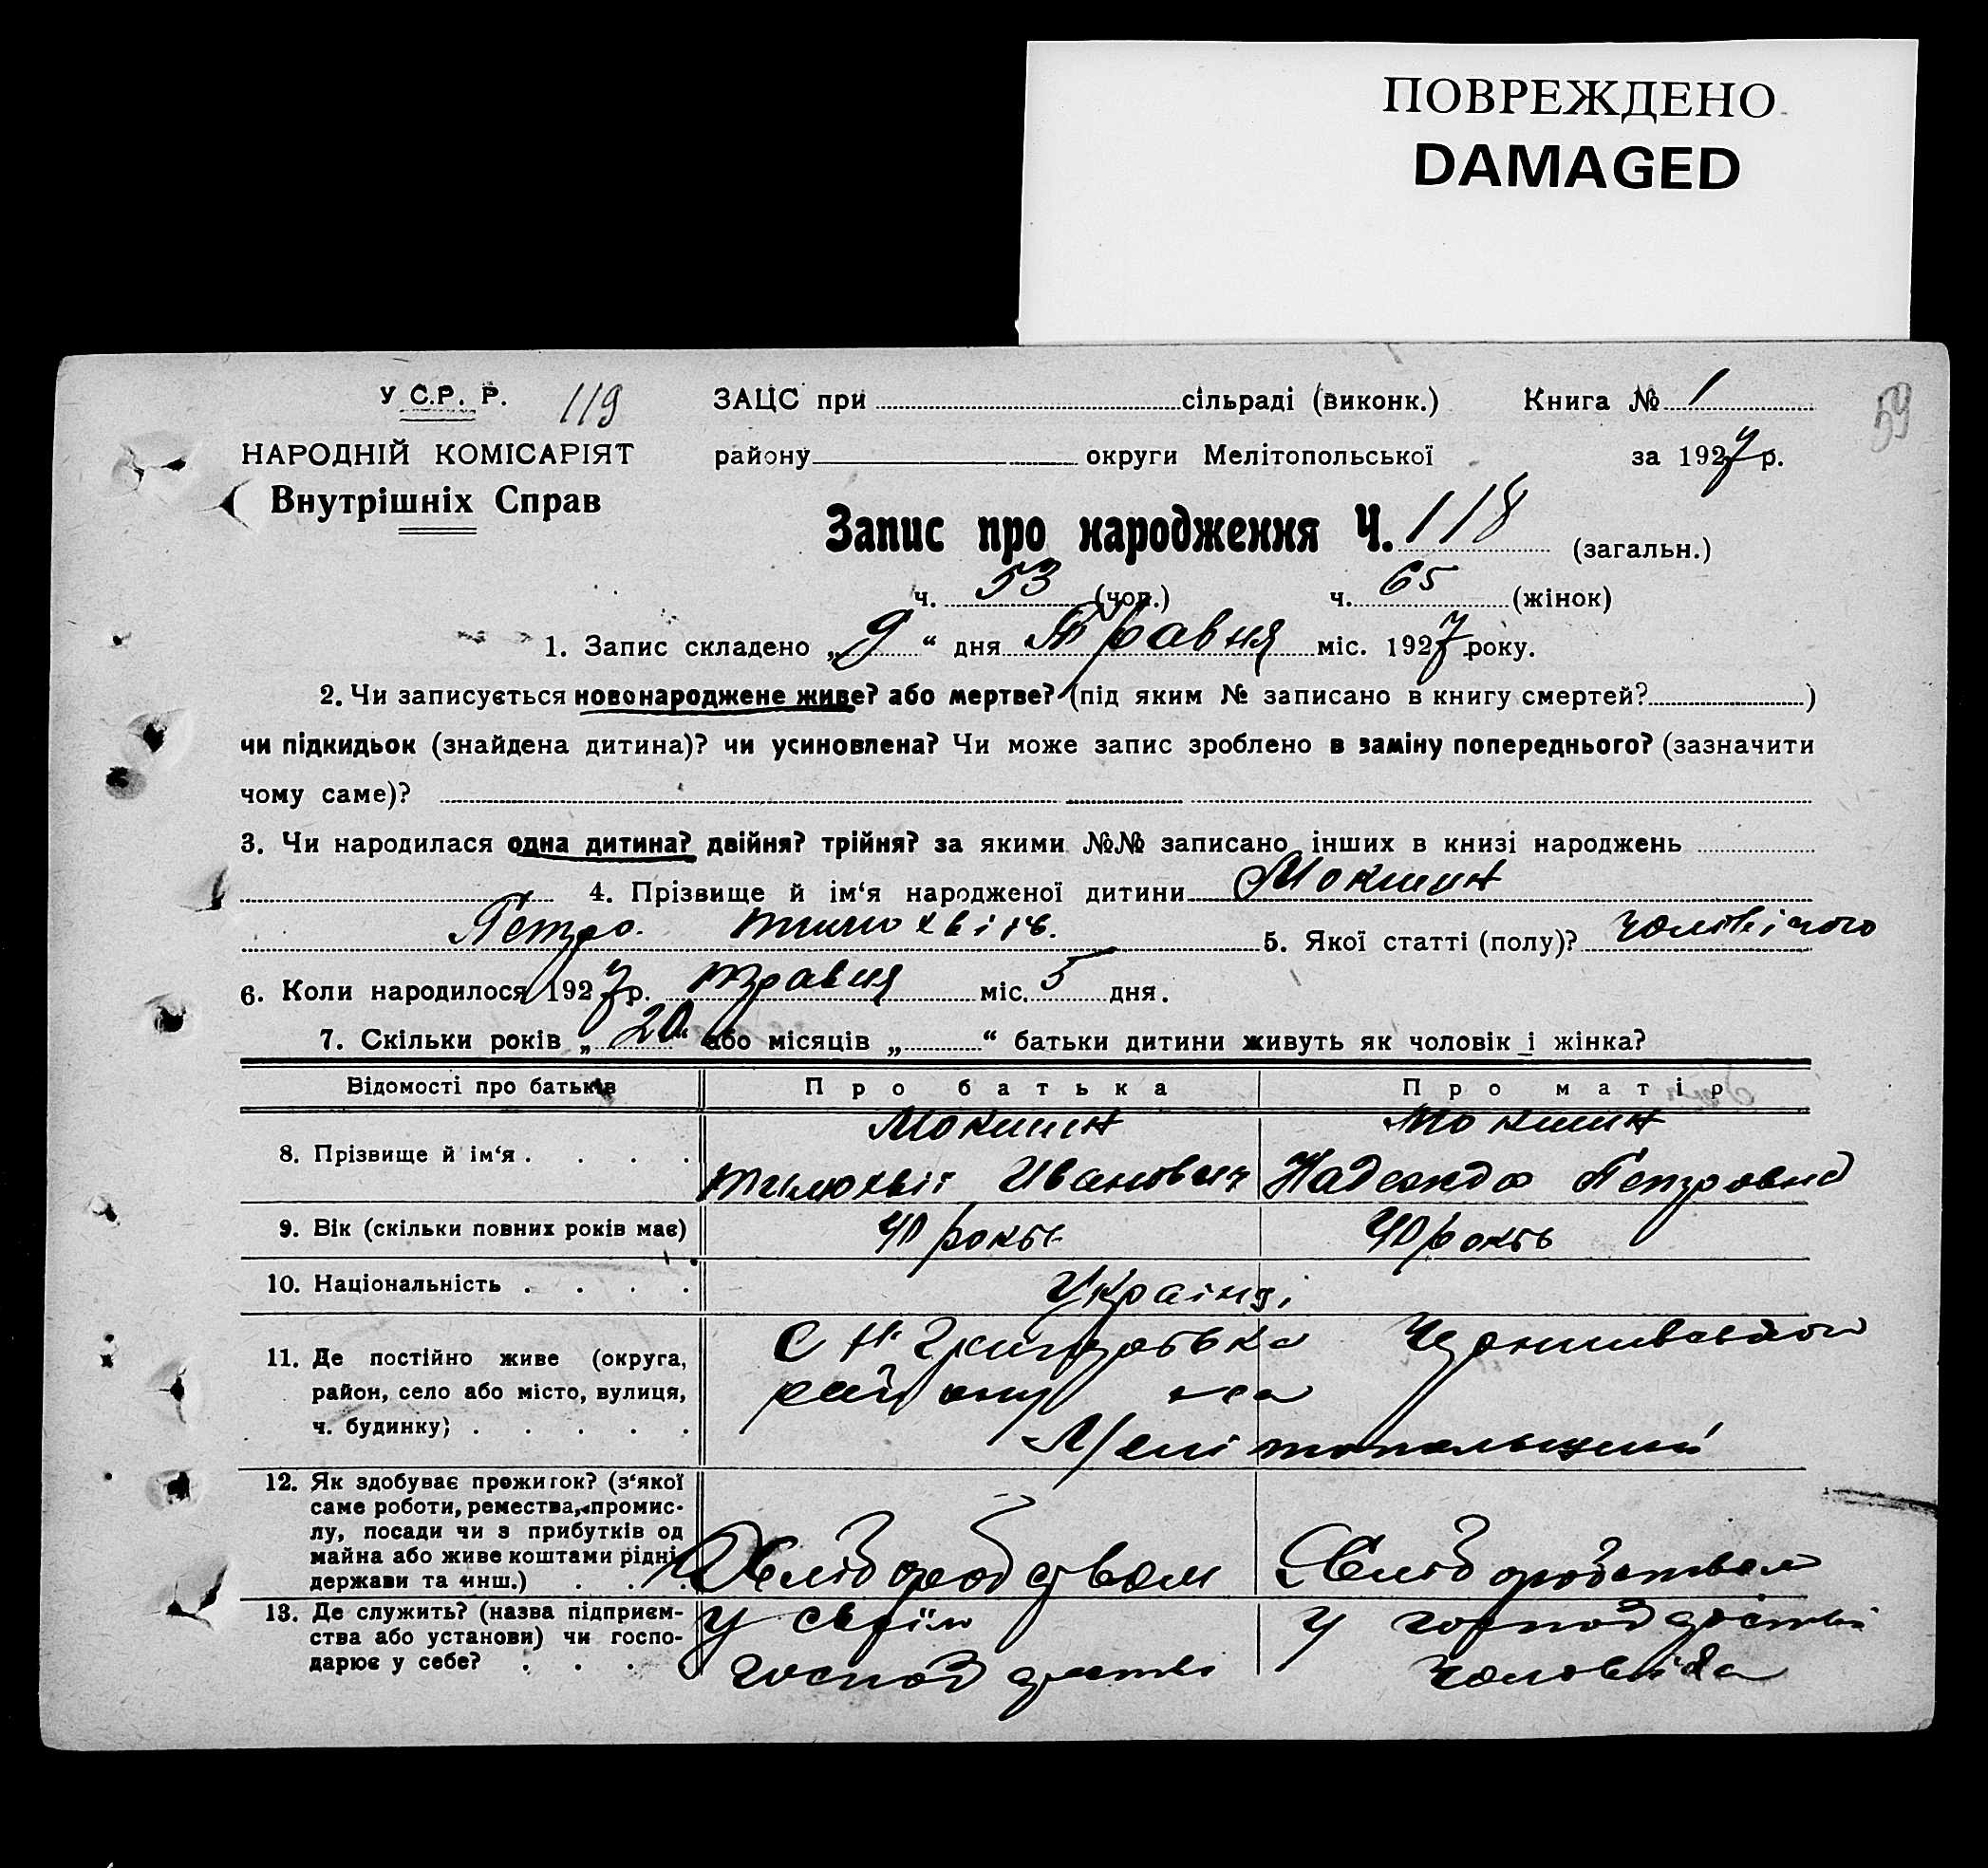 ПОВРЕЖДЕНО
DAMAGED
У С.Р. Р. 119 ЗАЦС при сільраді (виконк.) Книга № 1 59
НАРОДНІЙ КОМІСАРІЯТ району округи Мелітопольської за 1927 р.
Внутрішніх Справ
Запис про народження Ч. 118 (загальн.)
ч. 53 (чол.) ч. 65 (жінок)
1. Запис складено „9“ дня Травня міс. 1927 року.
2. Чи записується новонароджене живе? або мертве? (під яким № записано в книгу смертей? )
чи підкидьок (знайдена дитина)? чи усиновлена? Чи може запис зроблено в заміну попереднього? (зазначити
чому саме)?
3. Чи народилася одна дитина? двійня? трійня? за якими №№ записано інших в книзі народжень
4. Прізвище й ім‘я народженої дитини Мокшин
Петро 5. Якої статті (полу)? чоловічого
6. Коли народилося 1927 р. травня міс. 5 дня.
7. Скільки років „20“ або місяців „ “ батьки дитини живуть як чоловік і жінка?
Відомості про батьків Про батька Про матір
Мокшин Мокшин
8. Прізвище й ім‘я . . . .
Иванович Надежда Петровна
9. Вік (скільки повних років має) 40 років 40 років
10. Національність . . . . Українці
11. Де постійно живе (округа,
район, село або місто, вулиця,
ч. будинку) . . . . .
С Н Григоровка
району на
Мелітопольщині
12. Як здобуває прожиток? (з‘якої
саме роботи, ремества, промис-
лу, посади чи з прибутків од
майна або живе коштами рідні,
держави та инш.) . . .
Хліборобством Хліборобством
13. Де служить? (назва підприєм-
ства або установи) чи госпо-
дарює у себе? . . . .
У своїм У господарстві
господарстві чоловіка